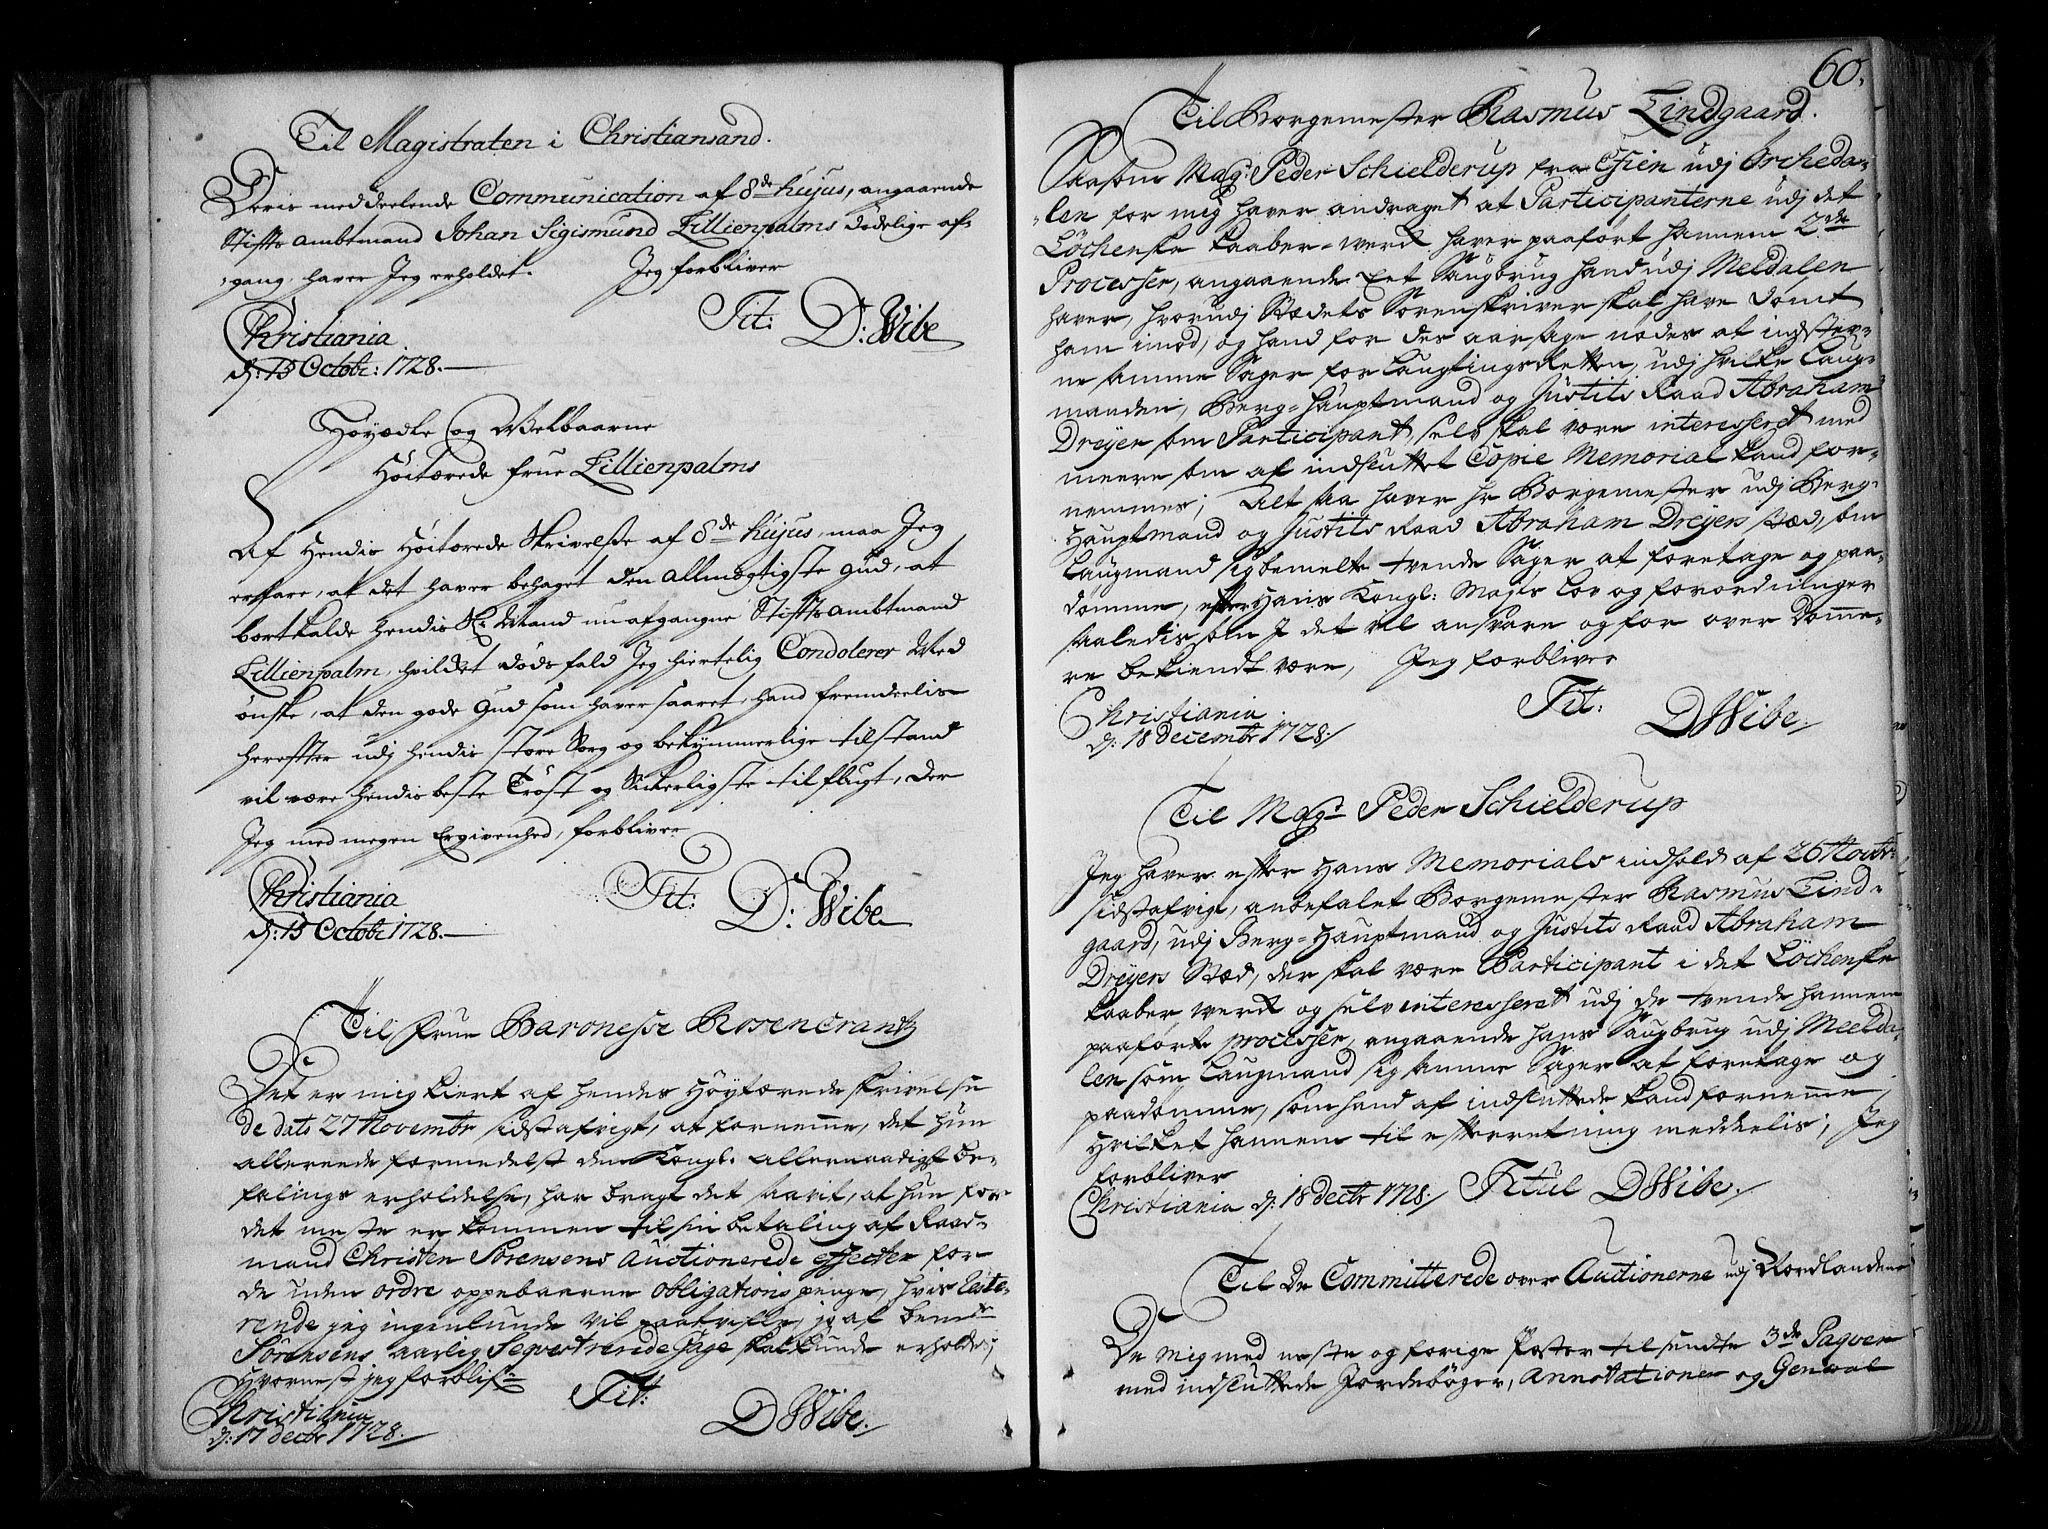 Til Magistraten i Christiansand.
Deris meddeelende Communication af 8de hujus, angaaende
Stiftsambtmand Johan Sigismund Lillienpalms dødelige af-
gang, haver Jeg erholdet. Jeg forbliver
Tit: D: Wibe
Christiania
d: 15 Octobr: 1728.
Høyædle og Welbaarne
Høitærede Frue Lillienpalms
Af Hendis Høitærede Skrivelse af 8de hujus, maa Jeg
erfare, at det haver behaget den Allmægtigste Gud, at
bortkalde Hendis Sl: Mand nu afgangne Stiftsambtmand
Lillienpalm, hvilket dødsfald Jeg hiertelig Condolerer Med
ønske, at den gode Gud som haver saaret, hand fremdeelis
herefter udj hendis store Sorg og bekymmerlige tilstand
vil være hendis beste Trøst og Sickerligste tilflugt, der
Jeg med megen Ergivenhed, forbliver
Tit: D: Wibe
Christiania
d: 15 Octobr 1728.
Til Frue Baronesse Rosencrantz
Det er mig kiert af hendes Høytærede skrivelse
de dato 27 Novembr sidstafvigt, at fornemme, det hun
allereede formedelst den Kongl: allernaadigst be-
falings erholdelse, har bragt det saavit, at hun for
det meste er kommen til sin betaling af Raad-
mand Christen Sørensens Auctionerede effecter for
de uden ordre oppebaarne obligations penge, hvis reste-
rende jeg ingenlunde vil paatvifle, jo af bemte
Sørensens aarlig Seqvestrerede Gage skal kunde erholdes;
Hvornest jeg forblifr
Tit: DWibe.
Christiania
d: 17 decbr 1728.
60.
Til Borgemester Rasmus Lindgaard.
Saasom Mag: Peder Schielderup fra udj Orcheda-
len for mig haver andraget at Participanterne udj det
Löchenske Kaaber-werk haver paaført hannem 2de
Processer, angaaende Eet Saugbrug hand udj Meldalen
haver, hvorudj Stædets Sorenskriver skal have dømt
ham imod, og hand for des aarsage nødes at indstev-
ne samme Sager for Laugtings Retten, udj hvilke Laug-
manden, Berg-Hauptmand og Justits Raad Abraham
Dreyer som Participant, selv skal være interesseret med
meere som af indsluttet Copie Memorial kand for-
nemmes; Alt saa haver hr Borgemester udj Berg-
Hauptmand og Justits Raad Abraham Dreyers stæd, som
Laugmand sig bemelte tvende Sager at foretage og paa-
dømme, efter Hans Kongl: Mays Lov og forordninger
saaledis som I det vil ansvare og for over Domme-
re bekiendt være, Jeg forbliver
Tit: DWibe.
Christiania.
d: 18 decembr 1728.
Til Magr Peder Schielderup
Jeg haver efter Hans Memorials indhold af 26 Novbr:
sidstafvigt, anbefalet Borgemester Rasmus Lind-
gaard, udj Berg-Hauptmand og Justits Raad Abraham
Dreyers Stæd, der skal være Participant i det Löchenske
Kaaber werk og selv interesseret udj de tvende hannem
paaførte processer, angaaende hans Saugbrug udj Meelda-
len som Laugmand sig samme Sager at foretage og
paadømme, som hand af indsluttede kand fornemme,
Hvilket hannem til efterretning meddeelis; Jeg
forbliver
Christiania d: 18 decbr 1728. Titul DWibe.
Til De Committerede over Auctionerne udj Nordlandene
De mig med neste og forige Poster tilsendte 3de Paqver
med indsluttede Jordebøger, Annotationer og General